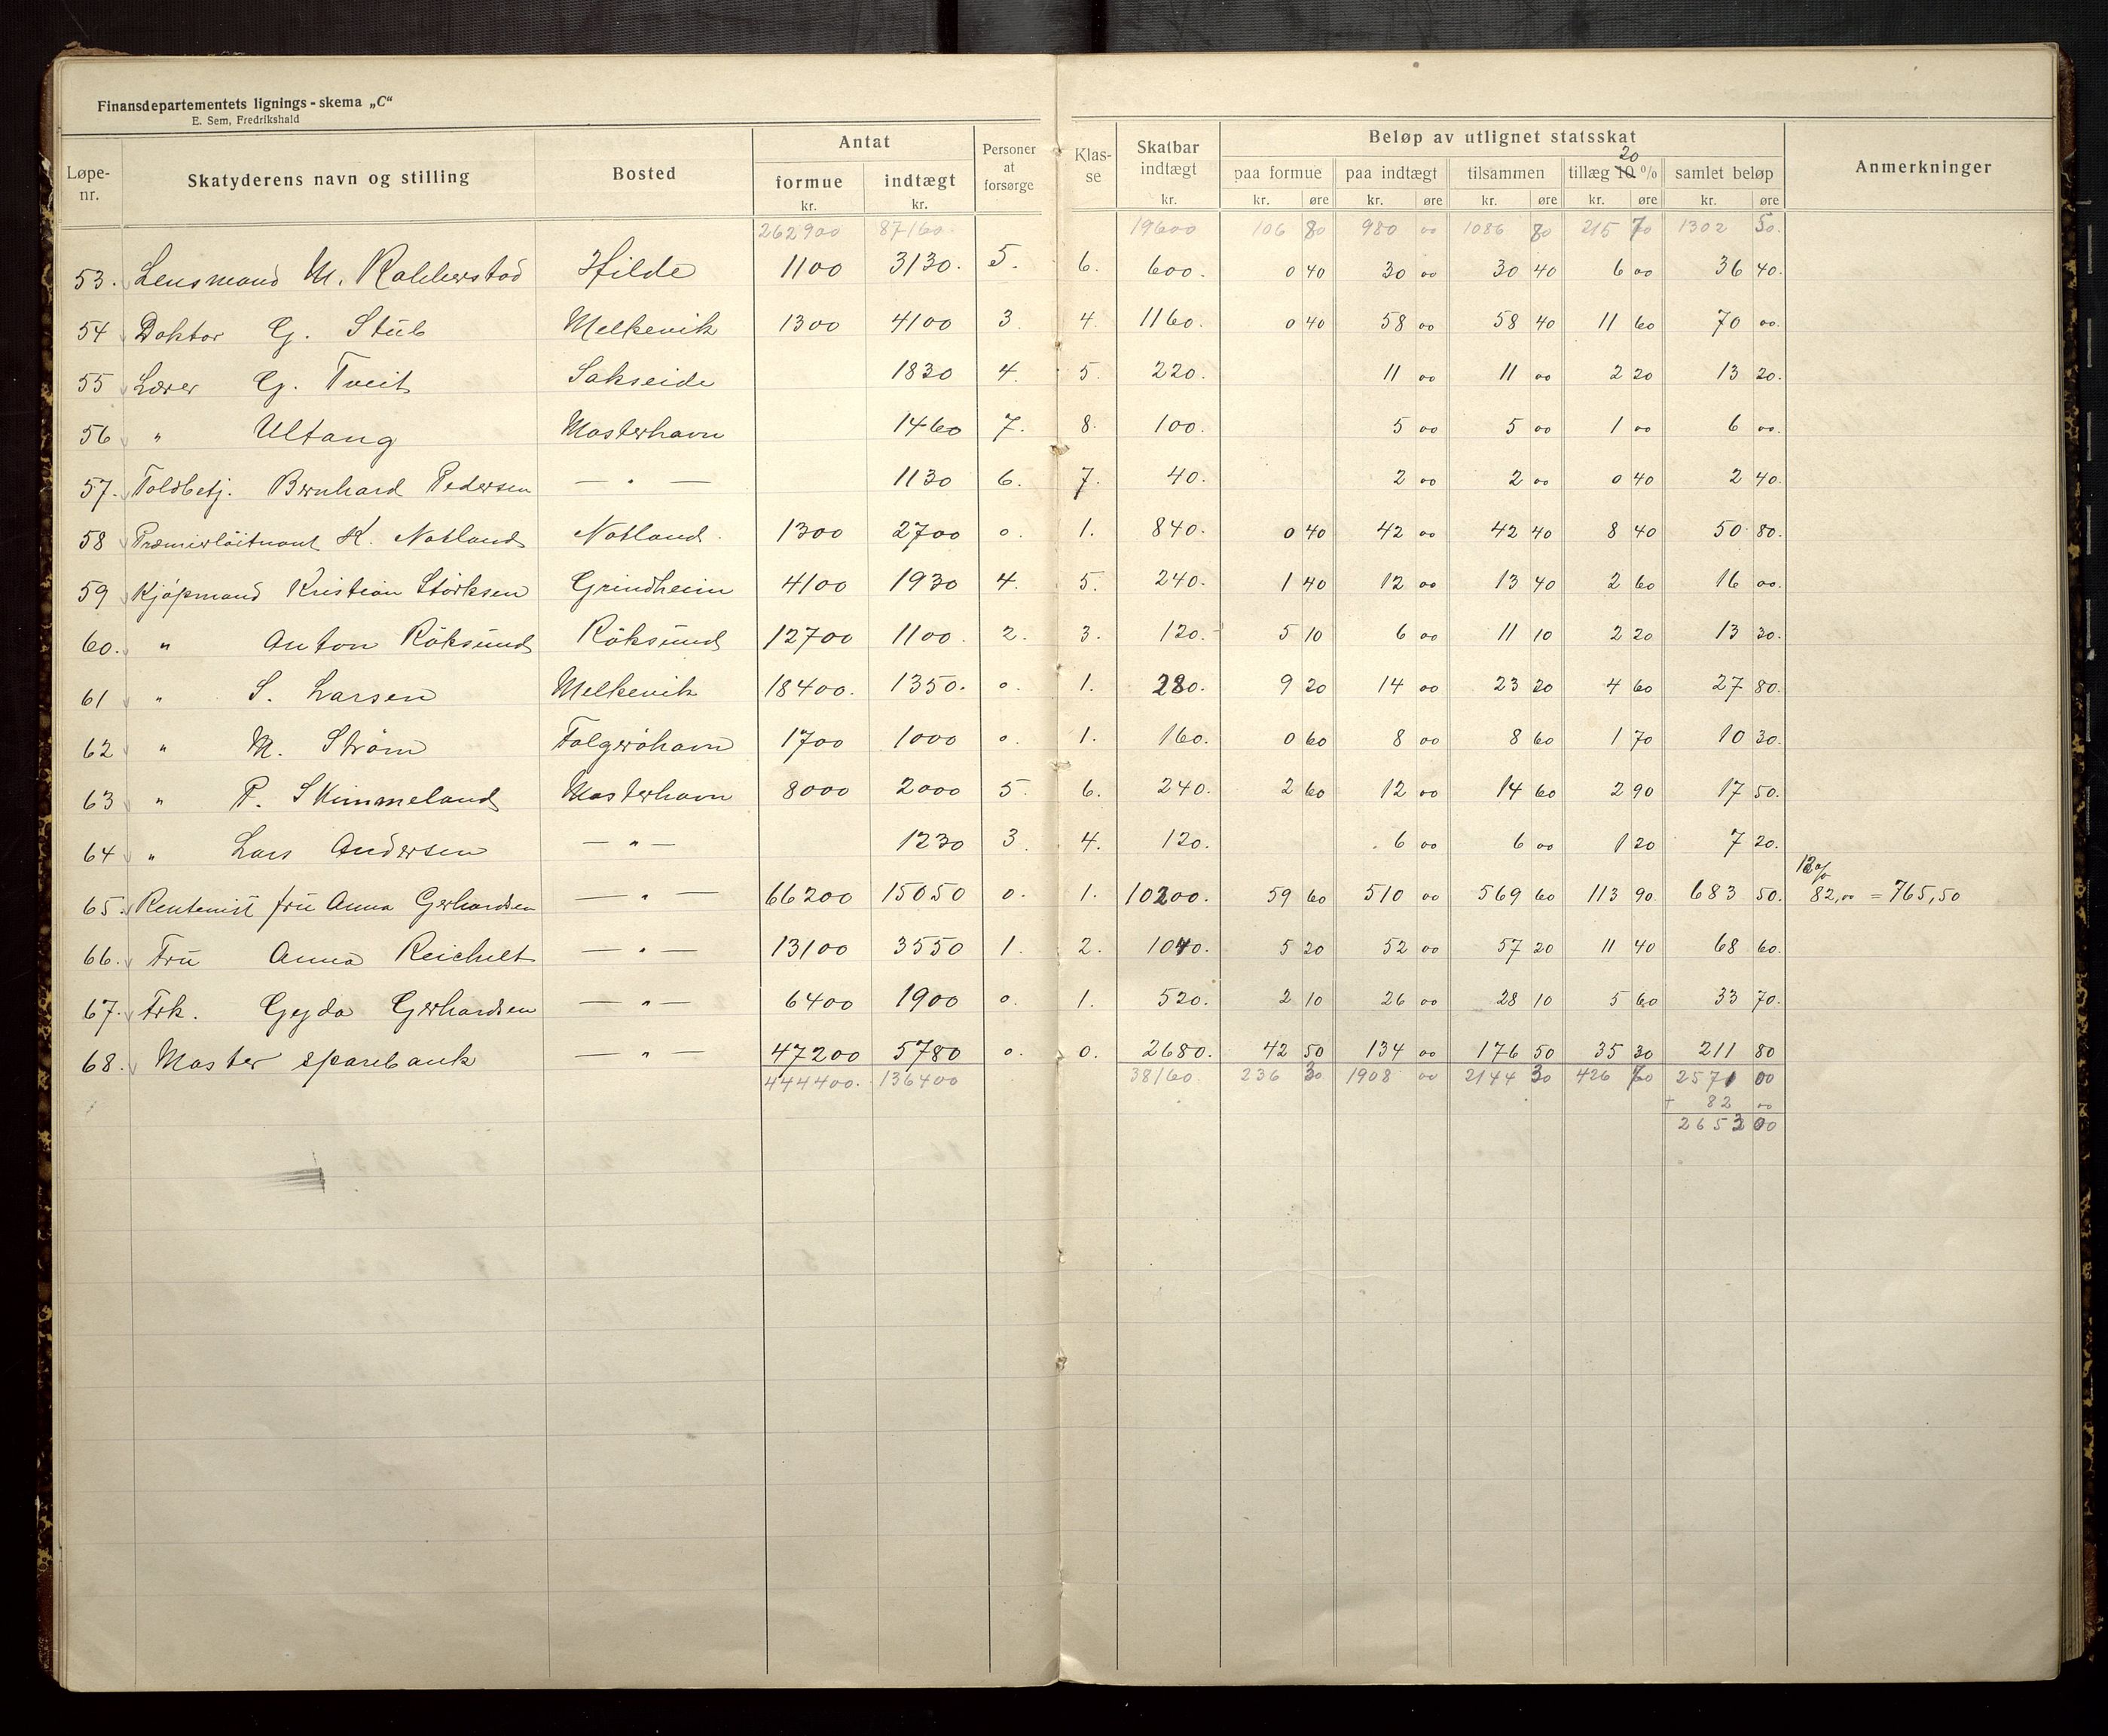 Finansdepartementets lignings-skema „C“
E. Sem, Fredrikshald
Løpe-nr. Skatyderens navn og stilling Bosted Antat formue kr. indtægt kr. Personer at forsørge Klas-se Skatbar indtægt kr. Beløp av utlignet statsskat paa formue kr. øre paa indtægt kr. øre tilsammen kr. øre tillæg 10 20 % kr. øre samlet beløp kr. øre Anmerkninger
262900 87160. 19600 106 80 980 00 1086 80 215 70 1302 50.
53. Lensmand M. Hilde 1100 3130. 5. 6. 600. 0 40 30 00 30 40 6 00 36 40.
54 Doktor G. Stub Melkevik 1300 4100 3. 4. 1160. 0 40 58 00 58 40 11 60 70 00.
55 Lærer G. Tveit Sakseide 1830 4. 5. 220. 11 00 11 00 2 20 13 20.
56 " Ultang Mosterhavn 1460 7. 8. 100. 5 00 5 00 1 00 6 00.
57. Toldbetj. Bernhard Pedersen — " — 1130 6. 7. 40. 2 00 2 00 0 40 2 40.
58 Premierløitnant K. Notland Notland. 1300 2700 0. 1. 840. 0 40 42 00 42 40 8 40 50 80.
59 Kjøpmand Kristian Størksen Grindheim 4100 1930 4. 5. 240. 1 40 12 00 13 40 2 60 16 00.
60. " Anton Röksund Röksund 12700 1100. 2. 3. 120. 5 10 6 00 11 10 2 20 13 30.
61 " S. Larsen Melkevik 18400. 1350. 0. 1. 280. 9 20 14 00 23 20 4 60 27 80.
62 " M. Strøm Folgeröhavn 1700 1000 0. 1. 160. 0 60 8 00 8 60 1 70 10 30.
63 " P. Skimmeland Mosterhavn 8000 2000 5. 6. 240. 2 60 12 00 14 60 2 90 17 50.
64 " Lars Andersen — " — 1230 3. 4. 120. 6 00 6 00 1 20 7 20.
65. Rentenist fru Anna Gerhardsen — " — 66200 15050 0. 1. 10200. 59 60 510 00 569 60 113 90. 683 50. 12% 82,00 = 765,50
66. Fru Anna Reichelt — " — 13100 3550 1. 2. 1040. 5 20 52 00 57 20 11 40 68 60.
67. Frk. Gyda Gerhardsen — " — 6400 1900 0. 1. 520. 2 10 26 00 28 10 5 60 33 70.
68. Moster sparebank — " — 47200 5780 0. 0. 2680. 42 50 134 00 176 50 35 30 211 80
444400. 136400 38160. 236 30 1908 00 2144 30 426 70 2571 00
+ 82 00
2653 00